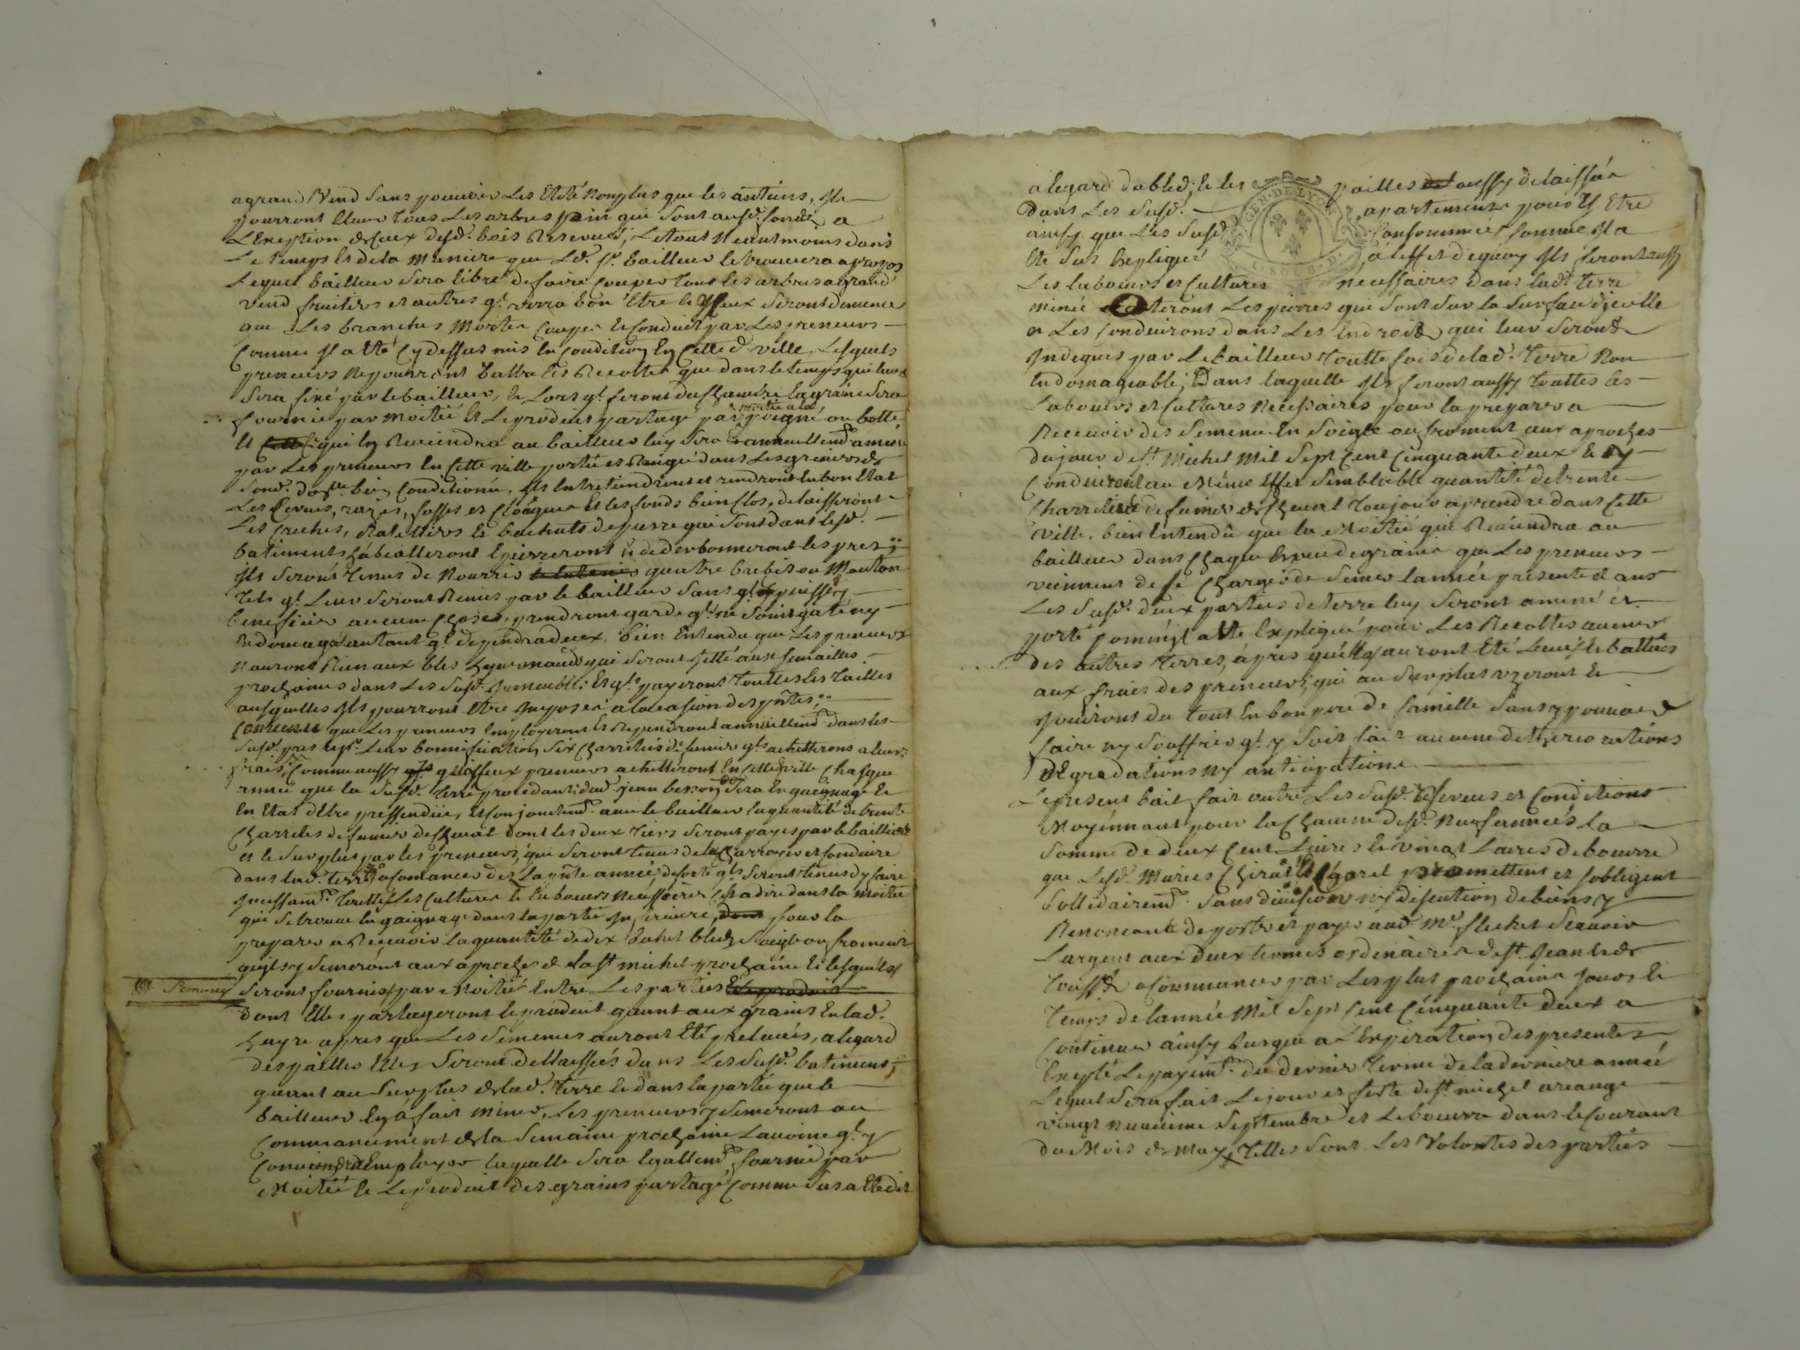 agrand Vend sans pouvoir les Eteté Nonplus que les antiens, Ils
pourront Elever tous Les arbres pain qui sont ausd. fonds, a
L'Exeption de Ceux desd. bois Reservés, Le tout Neantmoins dans
Le temps et de la Maniere que Led. Sr. bailleur le trouvera apropos
Lequel bailleur sera libre de faire couper tous les arbres agrand
vend fruitiers et autres ql. verra bon Etre
que Les branches Mortes Couper et conduire par Les preneurs
Comme Il a eté Cy dessus mis En Condition En Cette d. ville, Lesquels
preneurs Ne pourront battre les Recoltes que dans le temps qui leur
sera fixé par le bailleur, la graine sera
fournie par moitié et Le produit partagé par poigné ou botte
Et qui En Reviendra au bailleur luy sera annuellemt. amené
par Les preneurs En Cette ville porté et Rangé dans Les greniers
bien Conditionné, Ils Entretiendront et rendront En bon Etat
Les terres, razes, fosses et Cloaques Et les fonds bien Clos, delaisseront
Les Creches, Rateliers et bachats de pierre qui sont dans lesd.
batiments pierreront et
Ils seront tenus de Nourrir quatre brebis ou Mouton
tels ql. Leur seront Remis par le bailleur sans
beneficier aucune Chose, prendront garde ql. ne soint gaté ny
Endomagé autant ql. dependra deux, bien Entendu que Les preneurs
Nauront Rien aux bles hyvernaux qui seront jetté aux semailles
prochaines dans Les susd. Immeubles Et qls. payeront toutes Les tailles
ausquelles Ils pourront Etre Imposés a locasion des pntes,
Convenu que Les preneurs Employeront Et Rependront annuellemt. dans les
susd. prés Leur bonnification six Charretées de fumier qls. achetteront a leurs
frais, Comme aussy qu'Iceux preneurs achetteront En Cette ville Chasque
année que la susd. terre procedant dud. jean besson sera En gaignage Et
En Etat detre Et Conjointemt. avec le bailleur la quantité de trente
Charretées de fumier de Cheval dont les deux tiers seront payes par le bailleur
et le surplus par les preneurs, qui seront tenus de le Charroyer et Conduire
dans lad. terre a Commancer dez La pnte année, desorte qls. seront tenus dy faire
Incessamt. toutes Les Cultures et labours Necessaires C'est a dire dans la moitié
qui se trouve En gaignage dans la partie Inferieure, pour la
preparer a Recevoir la quantité de dix bichet bled seigle ou froment
quils y semeront aux aproches de la St. michel prochaine Et lesquels
Semences seront fournies par Moitié Entre Les parties
dont Elles partageront le produit quant aux grains En lad.
hayre apres que Les semences auront Eté prelevés, a legard
des pailles Elles seront dellaissés dans Les susd. batiments,
quant au surplus de lad. terre Et dans la partie que le
bailleur En a fait miner, Les preneurs y semeront au
Commancement de la semaine prochaine Lavoine ql. y
Conviendra Employer laquelle sera Egallemt. fournie par
Moitié Et Le produit des grains partagé Comme sus a Eté dit
a legard du bled, Et les pailles aussy delaissées
dans Les susd. apartements pour y Etre
ainsy que Les susd. Consommées Comme Il a
Eté sus Expliqué, a leffet de quoy Ils feront aussy
Les labours et Cultures necessaires dans lad. terre
minée oteront Les pierres qui sont sur la surface d'jcelle
et Les Conduirons dans Les Endroits qui leur seront
Indeques par Le bailleur toutte fois de lad. terre Non
Endomageable; Dans laquelle Ils feront aussy touttes les
Labours et Cultures Necessaires pour la preparer a
Recevoir des semence En Soigle ou froment aux aproches
du jour de St. Michel Mil Sept Cent Cinquante deux Et y
Conduiront au Même Effet semblable quantité de trente
Charretées de fumier de Cheval toujours a prendre dans Cette
ville, bien Entendû que la Moitié qui Reviendra au
bailleur dans Chaque Espece de graine que Les preneurs
viennent de se Charger de semer lannée presente dans
Les susd. deux parties de terre luy seront amené et
porté Comme Il a Eté Expliqué pour Les Recoltes
des autres terres, après quelles auront Eté levés Et battues
aux frais des preneurs, qui au surplus uzeront Et
jouiront du tout En bon pere de famille sans y pouvoir
faire ny souffrir ql. y soit fait aucune deteriorations
Dégradations ny anticipations
Le present bail fait outre Les susd. Reserves et Conditions
Moyennant pour la Chacune desd. Neuf années la
somme de deux Cent Livres Et vingt Livres de beurre
que Lesd. Maries Chirat Et promettent et soblegent
sollidairemt. sans division ny discution de biens y
Renoncant de porter et payer aud. Mr. flechet scavoir
Largent aux deux termes ordinaires de St. Jean Et de
Toussts. a Commancer par Les plus prochains jours Et
Temps de lannée Mil Sept Cent Cinquante deux a
Continuer ainsy Jusques a LExpiration des presentes
Excpté Le payemt. du dernier terme de la derniere année
Lequel sera fait Le jour et feste de St. michel arcange
vingt neuvieme Septembre et Le beurre dans le Courant
du Mois de may, Telles sont Les Volontes des parties
GEN. DE LYON